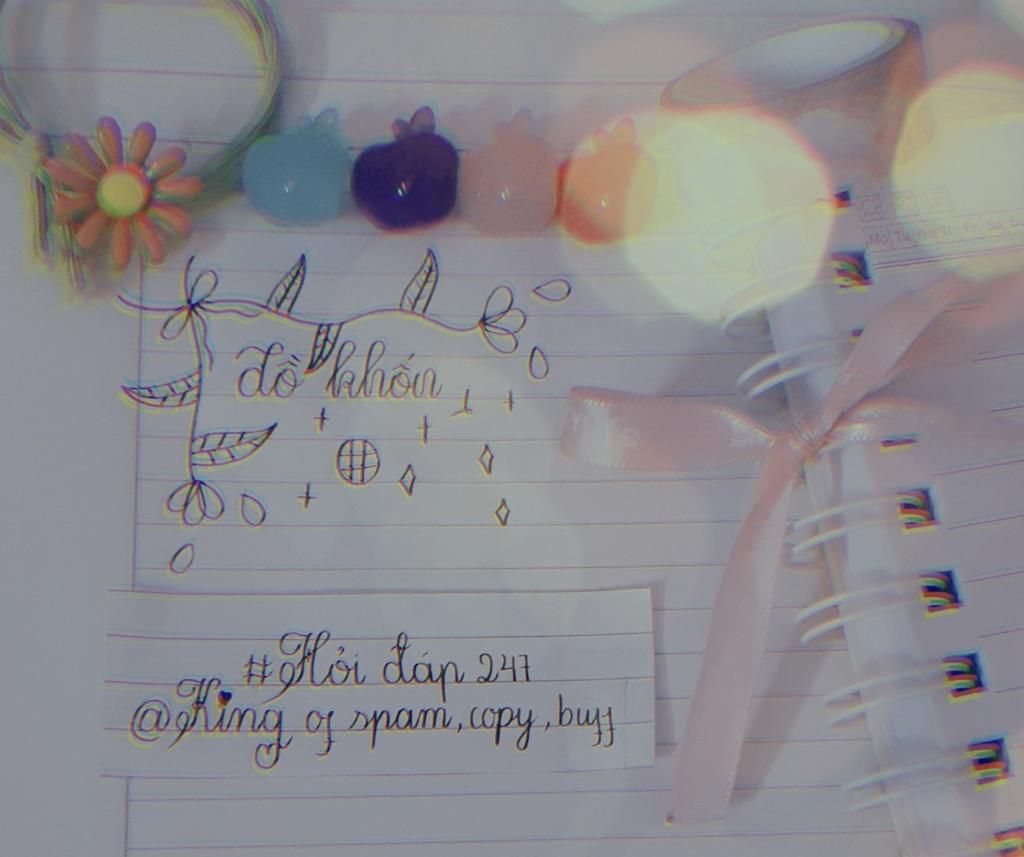 Mo Tu We Th Fr Sa S
đồ khốn
#Hỏi đáp 247
@King of spam, copy, buff